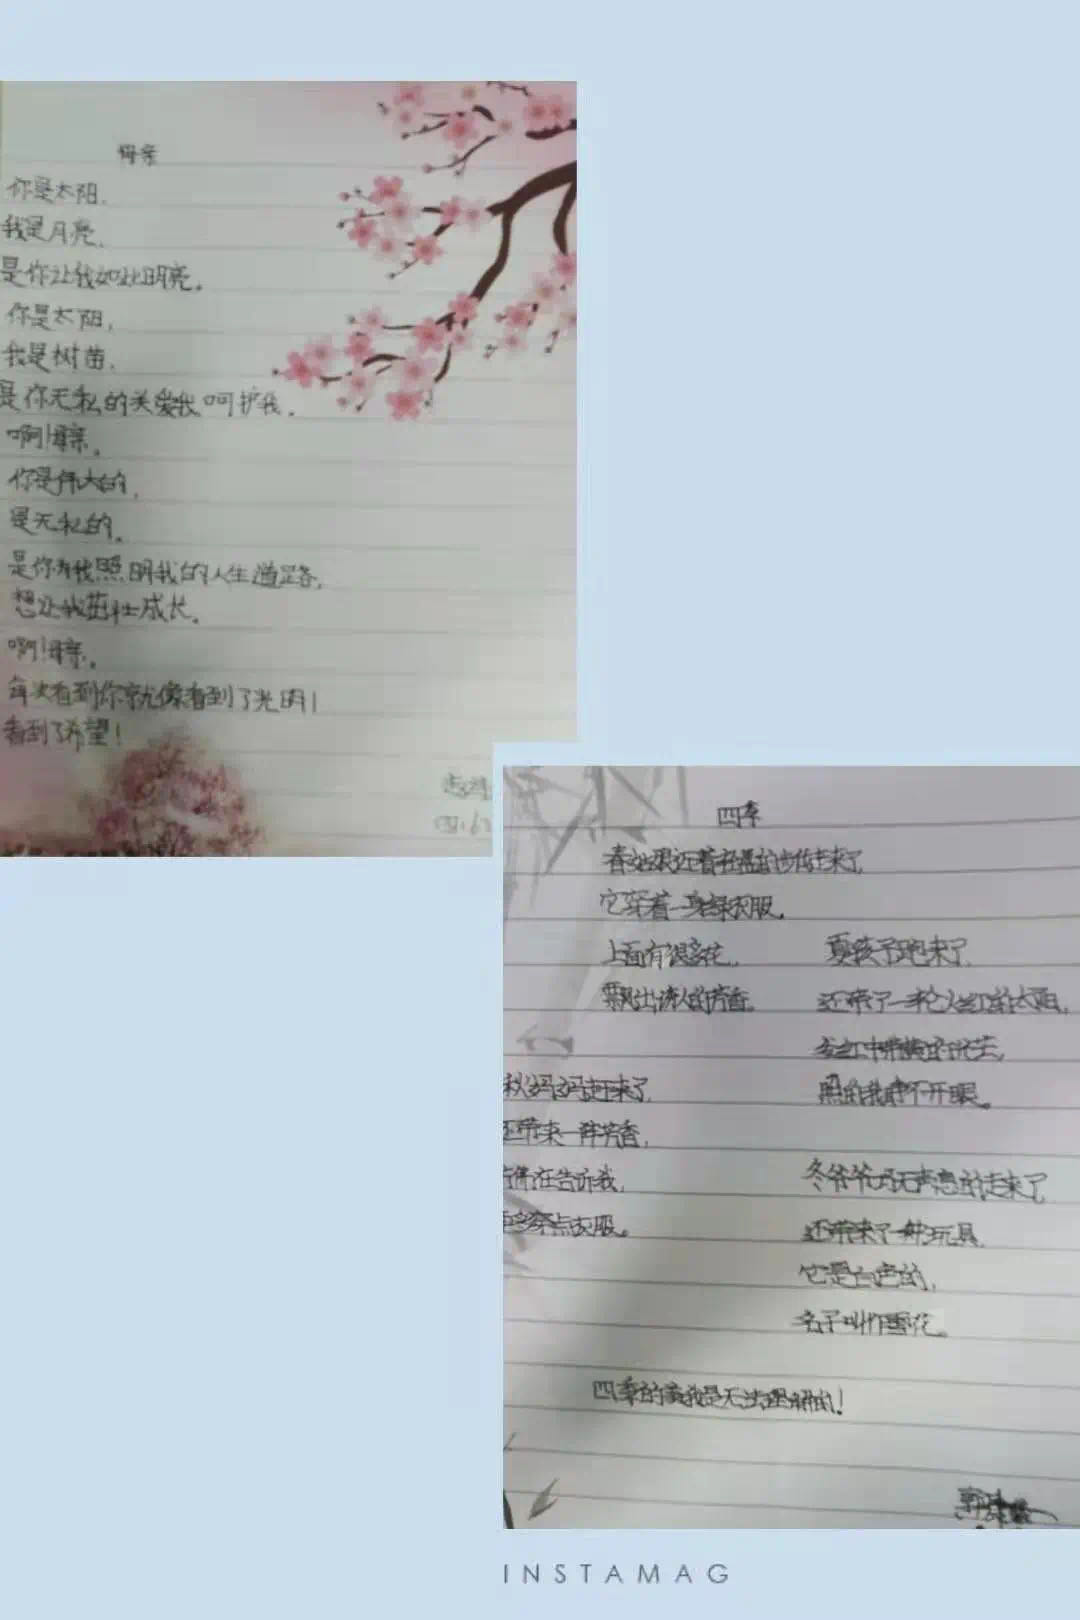 母亲
你是太阳,
我是月亮,
是你让我如此明亮。
你是太阳,
我是树苗,
是你无私的关爱我呵护我。
啊!母亲。
你是伟大的,
是无私的。
是你为我照明我的人生道路,
想让我茁壮成长。
啊!母亲。
每次看到你就像看到了光明!
看到了希望!
四季
春姑娘迈着轻盈的步伐走来了
它穿着一身绿衣服。
上面有很多花,
飘出诱人的芳香。
夏孩子跑来了,
还带了一轮火红的太阳,
照的我睁不开眼。
秋妈妈赶来了
还带来一阵芳香,
在告诉我,
多穿点衣服。
冬爷爷无声息的走来了
还带来了一种玩具,
它是白色的,
名子叫作雪花。
四季的美我是无法理解的!
INSTAMAG